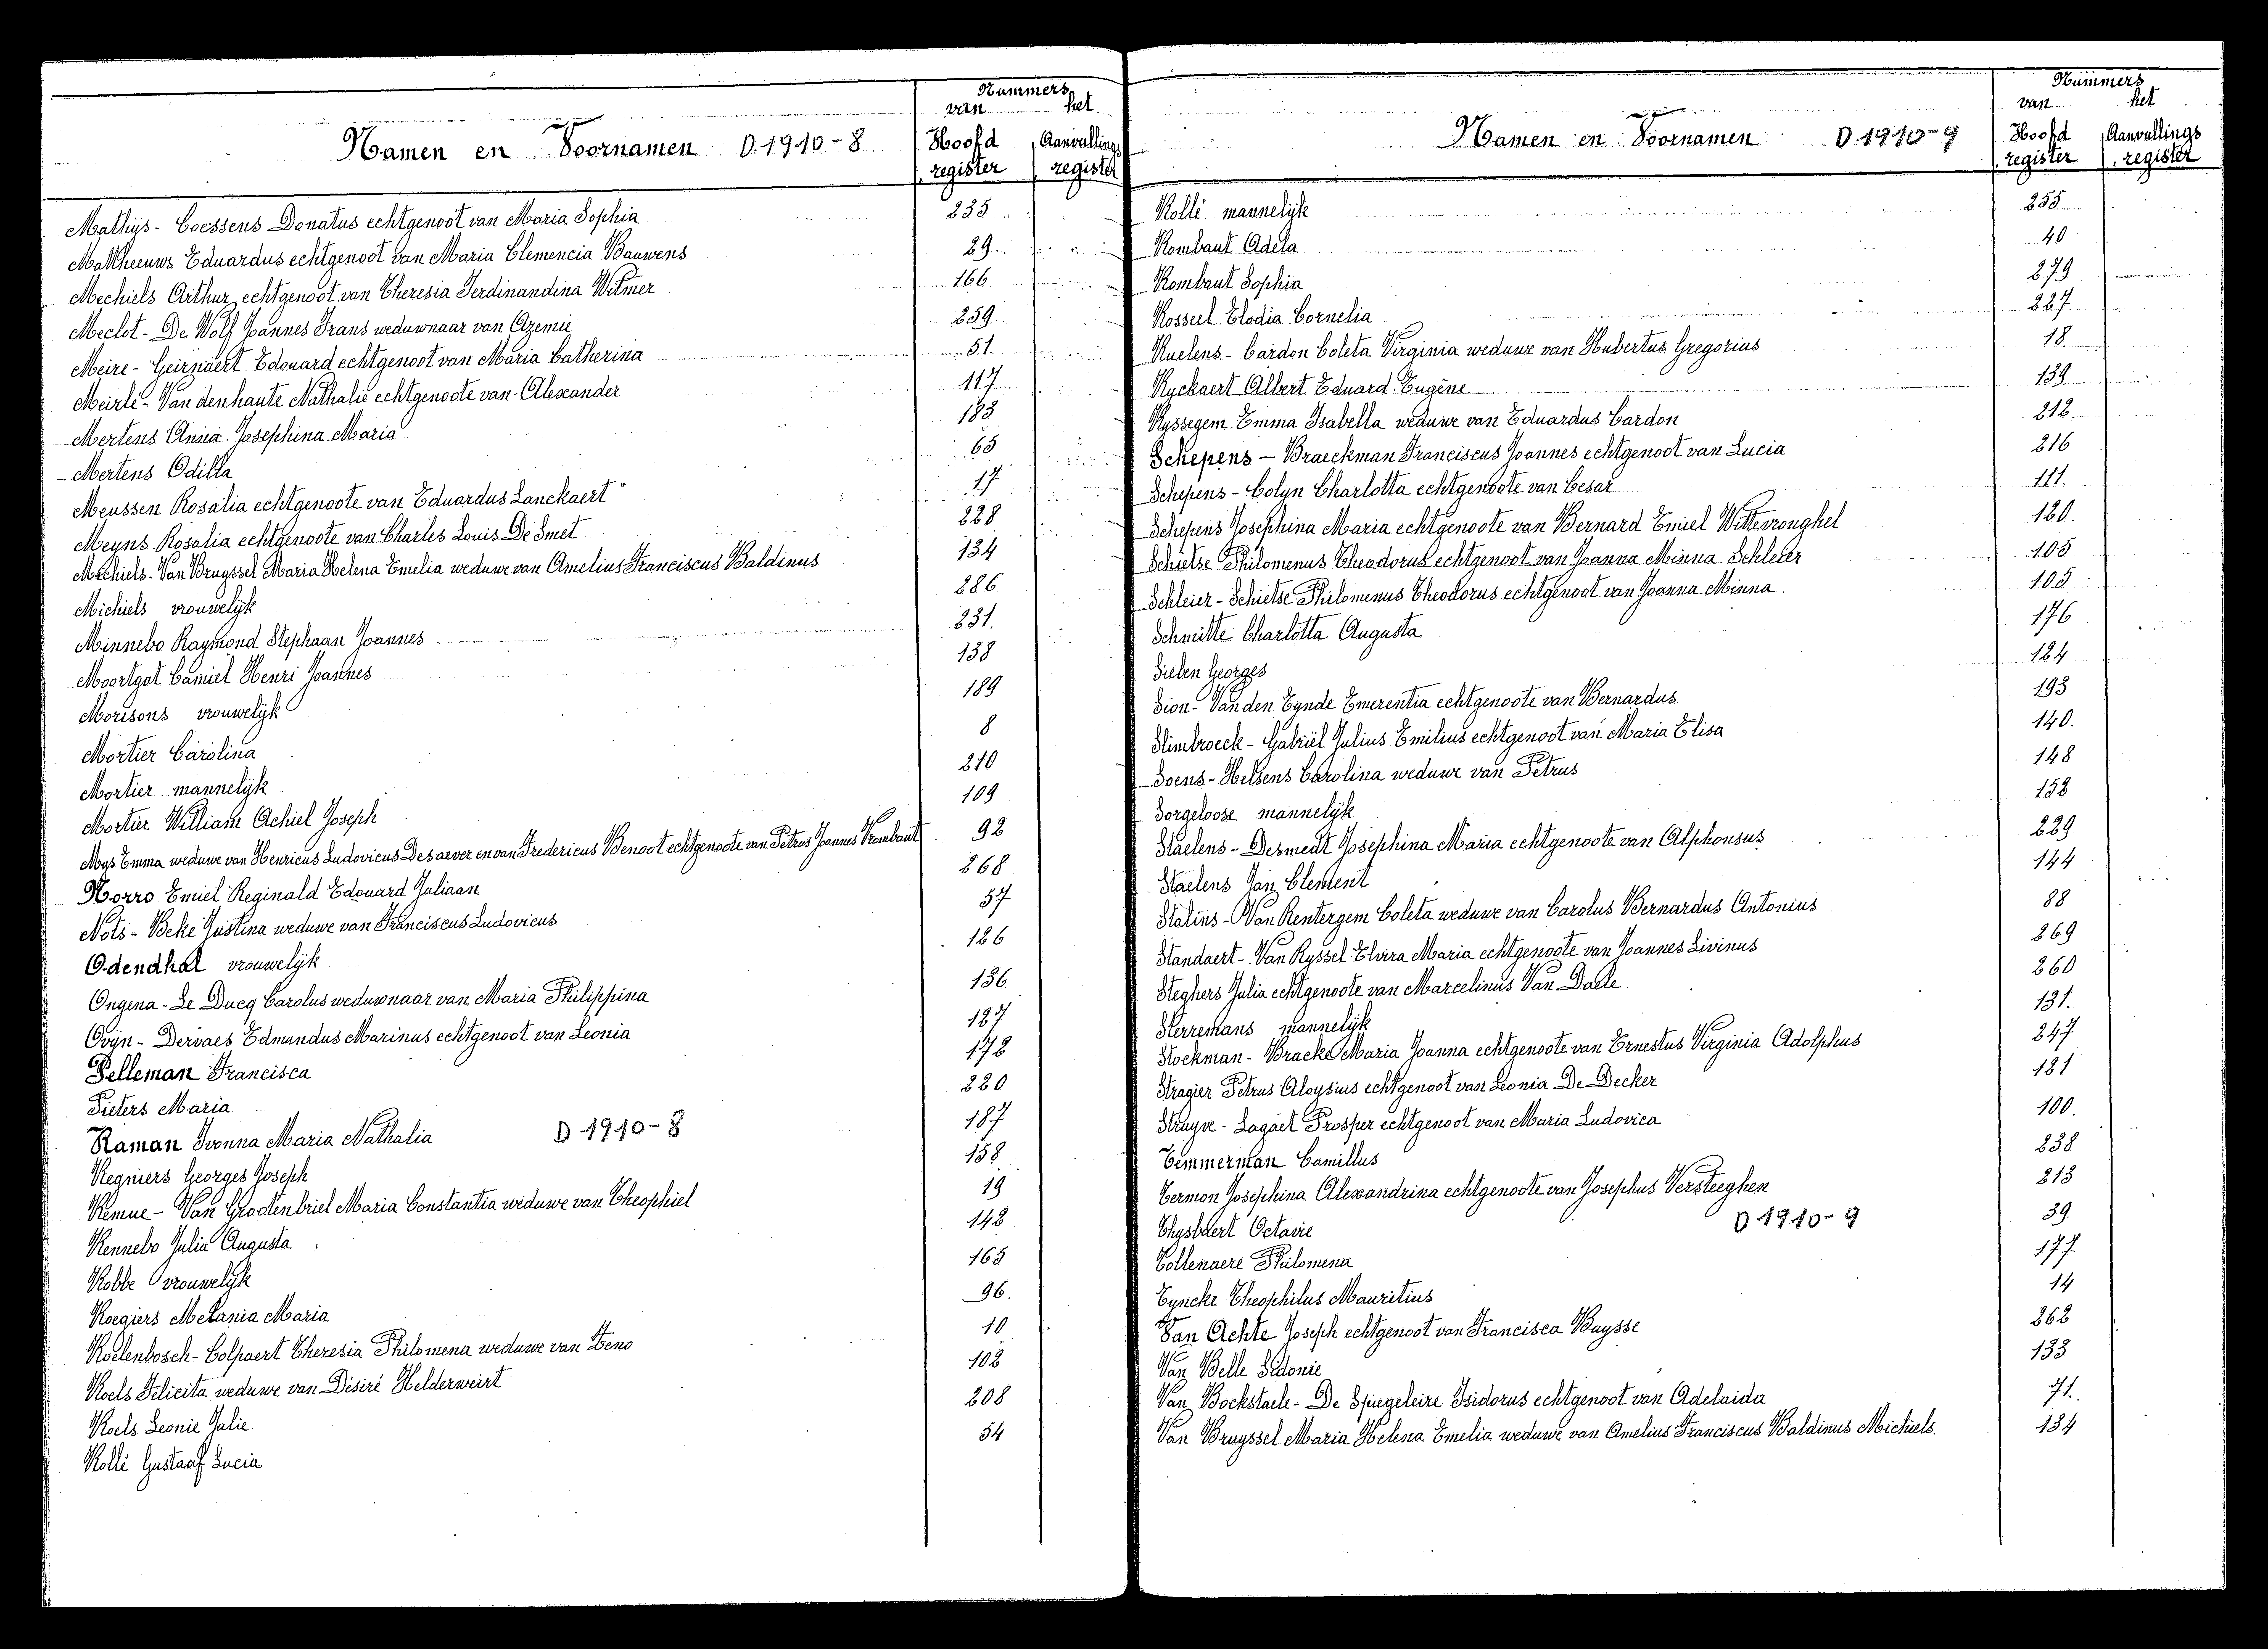 Namen en Voornamen D.1910-8 Nummers van het Hoofd register Aanvullings register
Mathijs - Coessens Donatus echtgenoot van Maria Sophia 235
Mattheeuws Eduardus echtgenoot van Maria Clemencia Bauwens 29
Mechiels Arthur echtgenoot van Theresia Ferdinandina Witmer 166
Meclot - De Wolf Joannes Frans weduwnaar van Azemie 259
Meire - Geirnaert Edouard echtgenoot van Maria Catherina 51
Meirlé - Van den haute Nathalie echtgenoote van Alexander 117
Mertens Anna Josephina Maria 183
Mertens Odilla 65
Meussen Rosalia echtgenoote van Eduardus Lanckaert 17
Meyns Rosalia echtgenoote van Charles Louis De Smet 228
Michiels - Van Bruyssel Maria Helena Emelia weduwe van Amelius Franciscus Baldinus 134
Michiels vrouwelijk 286
Minnebo Raymond Stephaan Joannes 231
Moortgat Camiel Henri Joannes 138
Morisons vrouwelijk 189
Mortier Carolina 8
Mortier mannelijk 210
Mortier William Achiel Joseph 109
Mys Emma weduwe van Henricus Ludovicus Desaever en van Fredericus Benoot echtgenoote van Petrus Joannes Rombaut 92
Norro Emiel Reginald Edouard Juliaan 268
Nots - Beke Justina weduwe van Franciscus Ludovicus 57
Odendhal vrouwelijk 126
Ongena - Le Ducq Carolus weduwnaar van Maria Philippina 136
Ovijn - Dervaes Edmundus Marinus echtgenoot van Leonia 127
Pelleman Francisca 172
Pieters Maria 220
Raman Ivonna Maria Nathalia D 1910-8 187
Regniers Georges Joseph 158
Remue - Van Grootenbriel Maria Constantia weduwe van Theophiel 19
Rennebo Julia Augusta 142
Robbe vrouwelijk 165
Roegiers Melania Maria 96
Roelenbosch - Colpaert Theresia Philomena weduwe van Zeno 10
Roels Felicita weduwe van Désiré Helderweirt 102
Roels Leonie Julie 208
Rollé Gustaaf Lucia 54
Namen en Voornamen D.1910-9 Nummers van het Hoofd register Aanvullings register
Rollé mannelijk 255
Rombaut Adela 40
Rombaut Sophia 279
Rosseel Elodia Cornelia 227
Ruelens - Cardon Coleta Virginia weduwe van Hubertus Gregorius 18
Ryckaert Albert Eduard Eugène 139
Ryssegem Emma Isabella weduwe van Eduardus Cardon 212
Schepens - Braeckman Franciscus Joannes echtgenoot van Lucia 216
Schepens - Colyn Charlotta echtgenoote van Cesar 111
Schepens Josephina Maria echtgenoote van Bernard Emiel Wittevronghel 120
Schietse Philomenus Theodorus echtgenoot van Joanna Minna Schleier 105
Schleier - Schietse Philomenus Theodorus echtgenoot van Joanna Minna 105
Schmitte Charlotta Augusta 176
Sielen Georges 124
Sion - Van den Eynde Emerentia echtgenoote van Bernardus 193
Slimbroeck - Gabriël Julius Emilius echtgenoot van Maria Elisa 140
Soens - Helsens Carolina weduwe van Petrus 148
Sorgeloose mannelijk 153
Staelens - Desmedt Josephina Maria echtgenoote van Alphonsus 229
Staelens Jan Clement 144
Stalins - Van Rentergem Coleta weduwe van Carolus Bernardus Antonius 88
Standaert - Van Ryssel Elvira Maria echtgenoote van Joannes Livinus 269
Steghers Julia echtgenoote van Marcelinus Van Daele 260
Sterremans mannelijk 131
Stockman - Bracke Maria Joanna echtgenoote van Ernestus Virginia Adolphus 247
Stragier Petrus Aloysius echtgenoot van Leonia De Decker 121
Struyve - Lagaet Prosper echtgenoot van Maria Ludovica 100
Temmerman Camillus 238
Termon Josephina Alexandrina echtgenoote van Josephus Versteeghen 213
Thysbaert Octavie D 1910-9 39
Tollenaere Philomena 177
Tyncke Theophilus Mauritius 14
Van Achte Joseph echtgenoot van Francisca Buysse 262
Van Belle Sidonie 133
Van Bockstaele - De Spiegeleire Isidorus echtgenoot van Adelaida 71
Van Bruyssel Maria Helena Emelia weduwe van Amelius Franciscus Baldinus Michiels 134